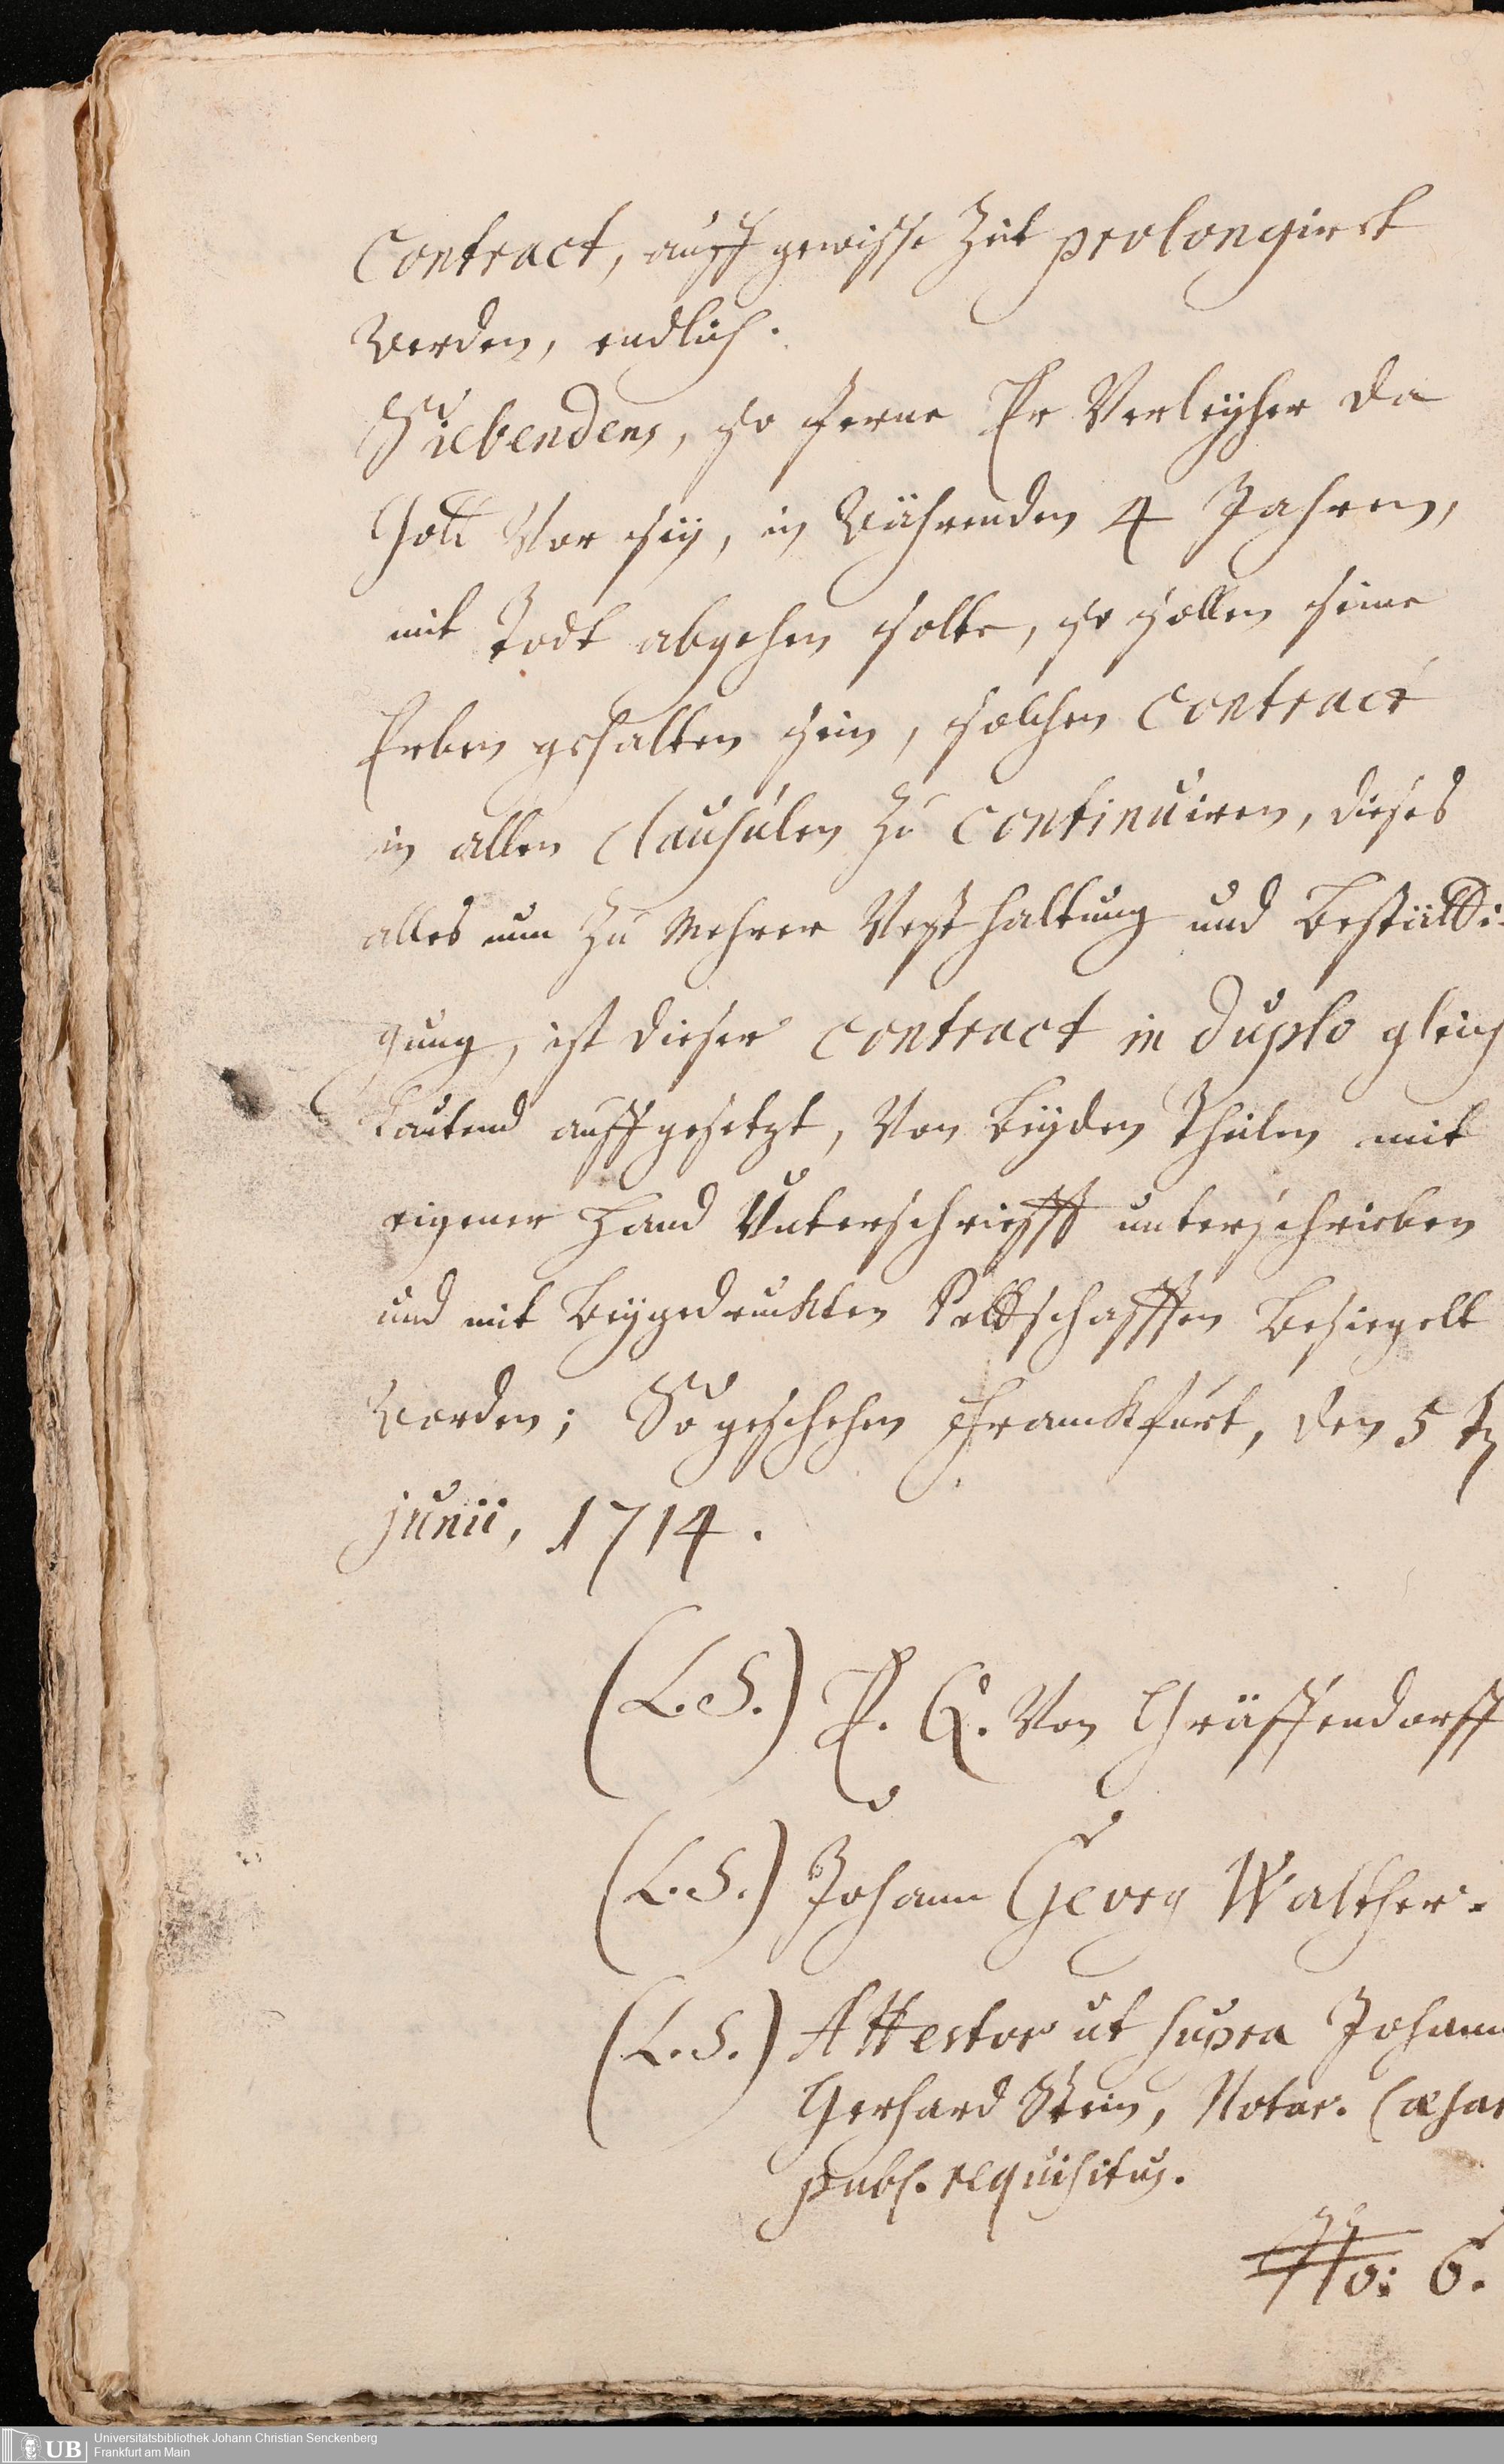 Contract, auff gewisse Zeit prolongiret
Werden, endlich.
Siebendens, so ferne Er Verleyher da
Gott Vor sey, in Währenden 4 Jahren,
mit Todt abgehen solte, so sollen seine
Erben gehalten sein, solchen Contract
in allen Clausulen zu Continuiren, dieses
alles nun zu Mehrer Vesthaltung und Bestätti-
gung, ist dieser Contract in duplo gleich
Lautend auffgesetzt, Von Beyden Theilen mit
eigener Hand Unterschriefft unterschrieben
und mit Beygedruckten Pettschafften Besiegelt
Worden; So geschehen Franckfurt, den 5 t
junii, 1714.
(L.S.) E. C. Von Gräffendorff
(L.S.) Johann Georg Walther.
(L.S.) Attestor ut supra Johann
Gerhard Stein, Notar. Cæsar
publ. requisitus.
No: 6.
UB Universitätsbibliothek Johann Christian Senckenberg
Frankfurt am Main